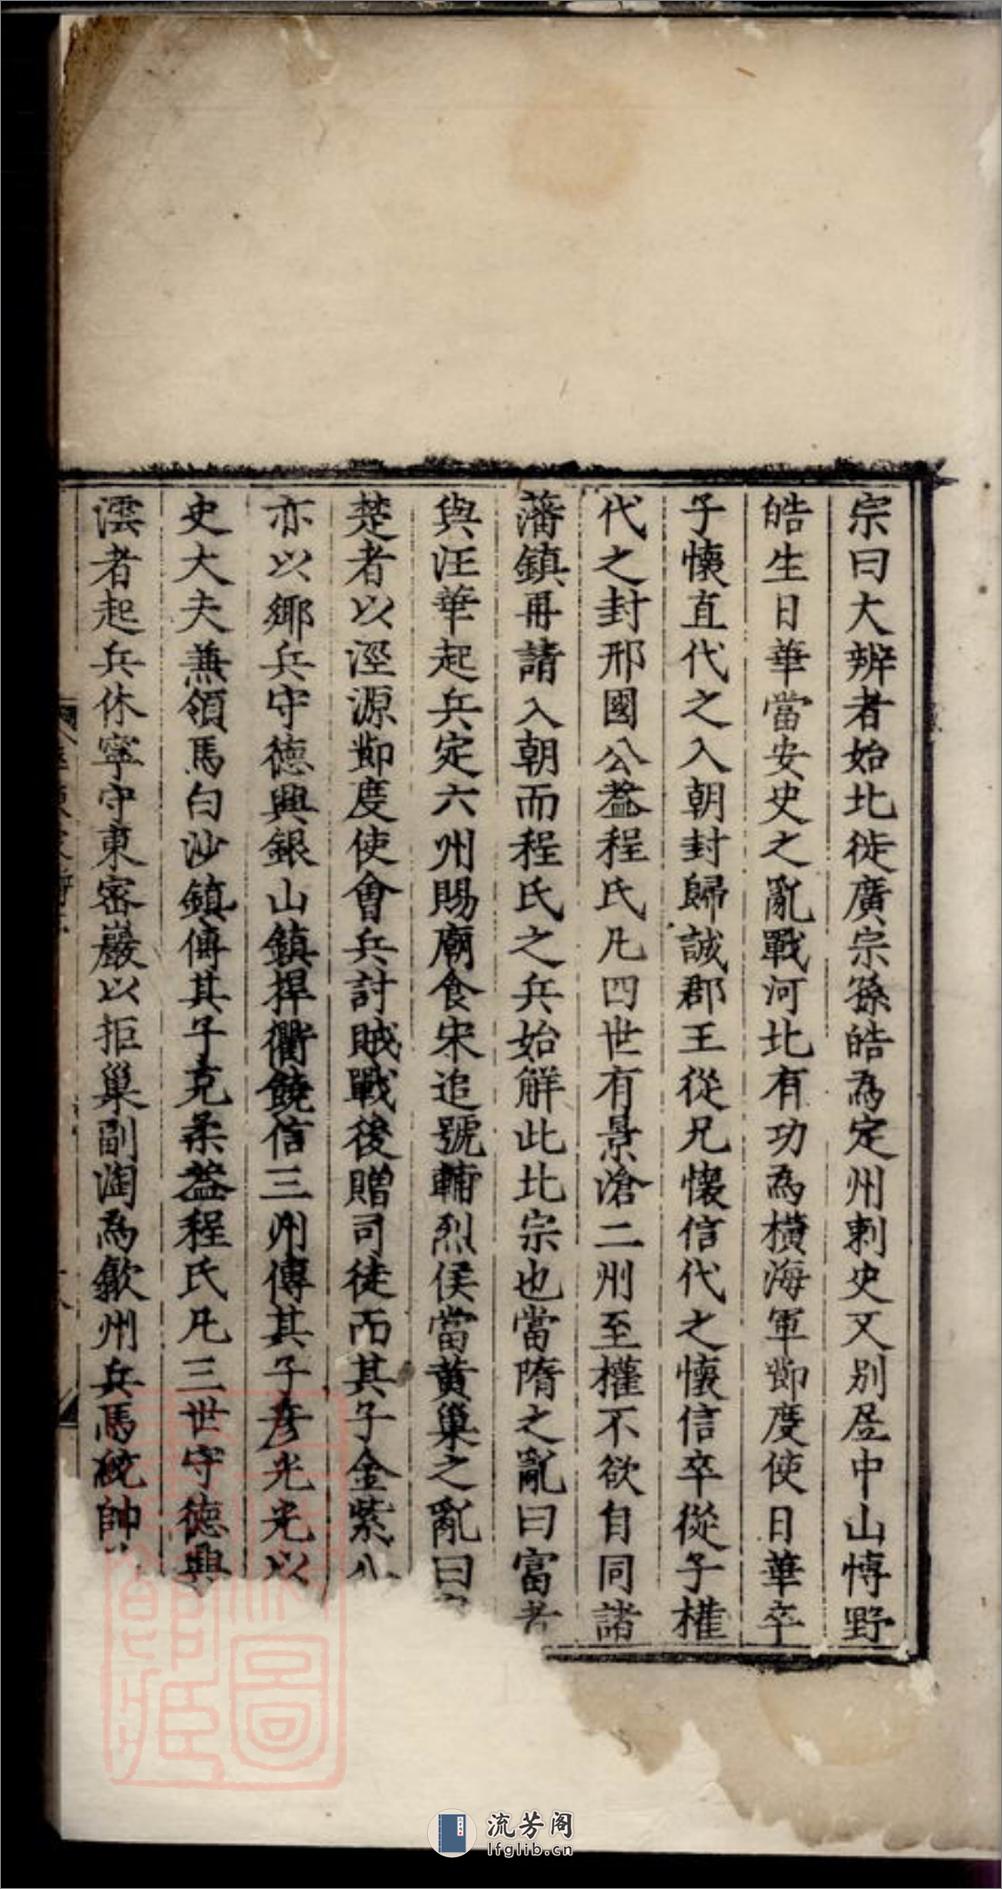 宗曰大辨者始北徙廣宗孫皓為定州刺史又別居中山博野
皓生日華當安史之亂戰河北有功為橫海軍節度使日華卒
子懷直代之入朝封歸誠郡王從兄懷信代之懷信卒從子權
代之封邢國公蓋程氏凡四世有景滄二州至權不欲自同諸
藩鎮再請入朝而程氏之兵始解此北宗也當隋之亂曰富者
與汪華起兵定六州賜廟食宋追號輔烈侯當黃巢之亂曰
楚者以涇源節度使會兵討賊戰後贈司徒而其子金紫
亦以鄉兵守德興銀山鎮捍衢饒信三州傳其子彥光光以
史大夫兼領馬白沙鎮傳其子克柔蓋程氏凡三世守德興
澐者起兵休寧守東密巖以拒巢副淘為歙州兵馬統帥
流芳阁
lfglib.cn